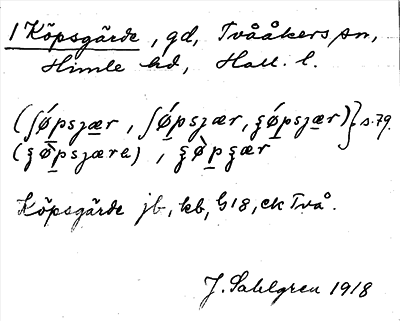 1 Köpsgärde, gd, Tvååkers sn,
Himle hd, Hall. l.
(ʃǿpsȷær, ʃǿpsȷær, ʂǿpsȷær)} s. 79.
(ʂø̀psȷæra), ʂø̀pȷær
Köpsgärde jb, kb, G18, ck Två.
J. Sahlgren 1918